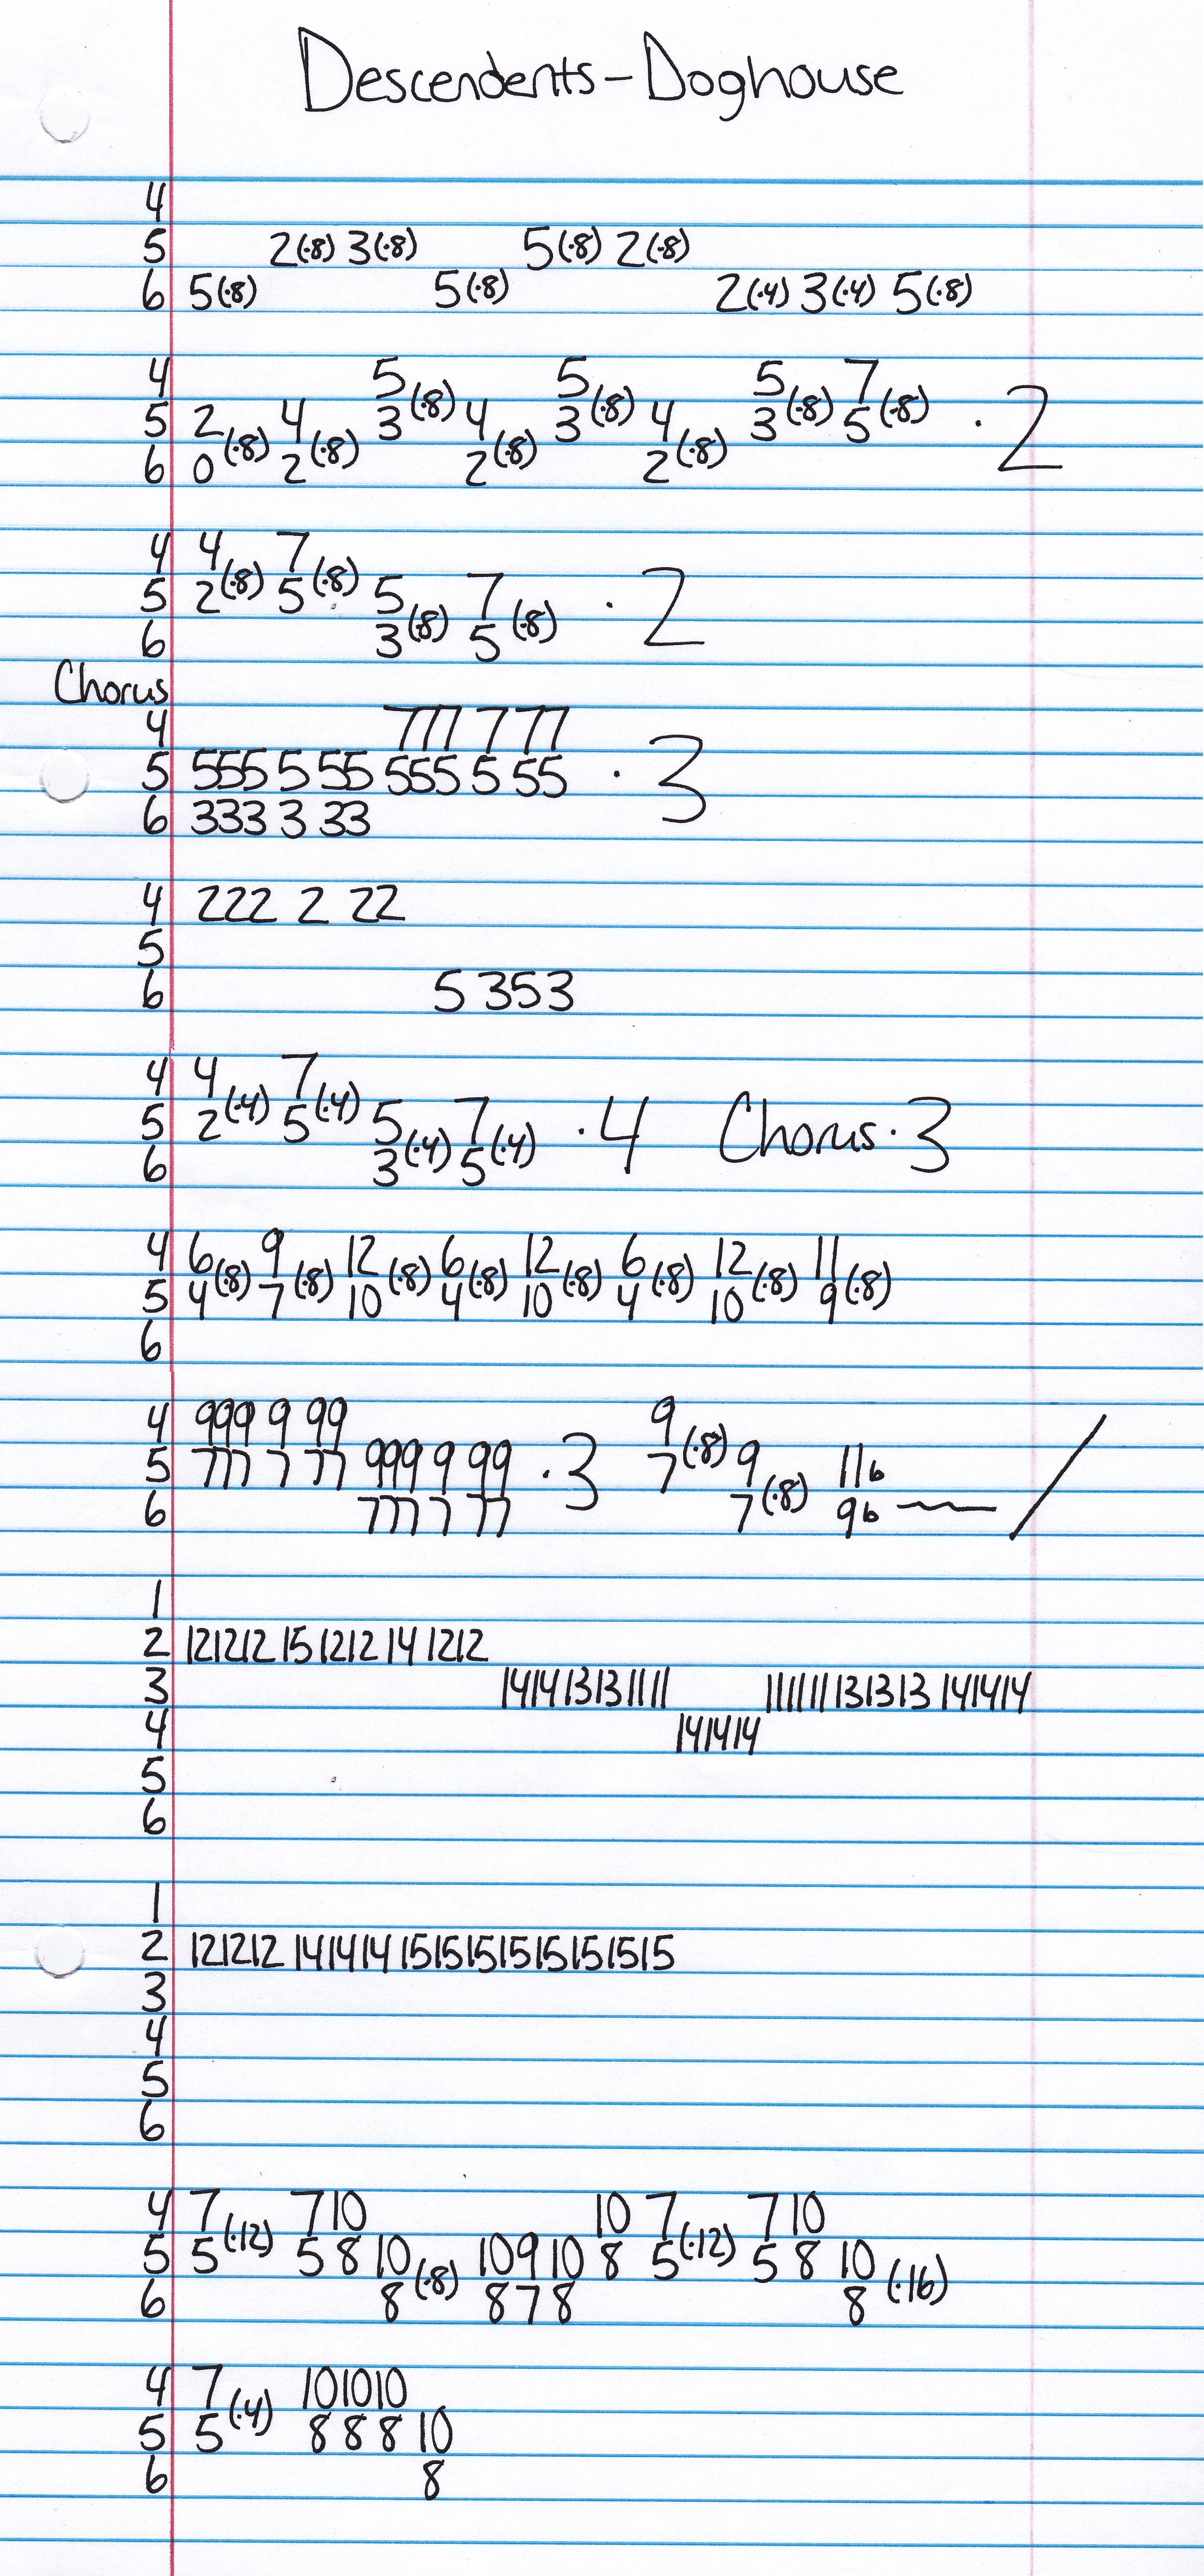 Descendents - Doghouse
4
5 2(·8) 3(·8) 5(·8) 2(·8)
6 5(·8) 5(·8) 2(·4) 3(·4) 5(·8)
4 5 5 5 7
5 2 4 3(·8) 4 3(·8) 4 3(·8) 5(·8) · 2
6 0(·8) 2(·8) 2(·8) 2(·8)
4 4 7
5 2(·8) 5(·8) 5 7 · 2
6 3(·8) 5(·8)
Chorus
4 777 7 77
5 555 5 55 555 5 55 · 3
6 333 3 33
4 222 2 22
5
6 5 353
4 4 7
5 2(·4) 5(·4) 5 7 · 4 Chorus · 3
6 3(·4) 5(·4)
4 6 9 12 6 12 6 12 11
5 4(·8) 7(·8) 10(·8) 4(·8) 10(·8) 4(·8) 10(·8) 9(·8)
6
4 999 9 99 9
5 777 7 77 999 9 99 · 3 7(·8) 9 11b
6 777 7 77 7(·8) 9b
1
2 121212 15 1212 14 1212
3 141413131111 111111131313 141414
4 141414
5
6
1
2 121212 141414 1515151515151515
3
4
5
6
4 7 7 10 10 7 7 10
5 5(·12) 5 8 10 10 9 10 8 5(·12) 5 8 10
6 8(·8) 8 7 8 8(·16)
4 7 101010
5 5(·4) 8 8 8 10
6 8